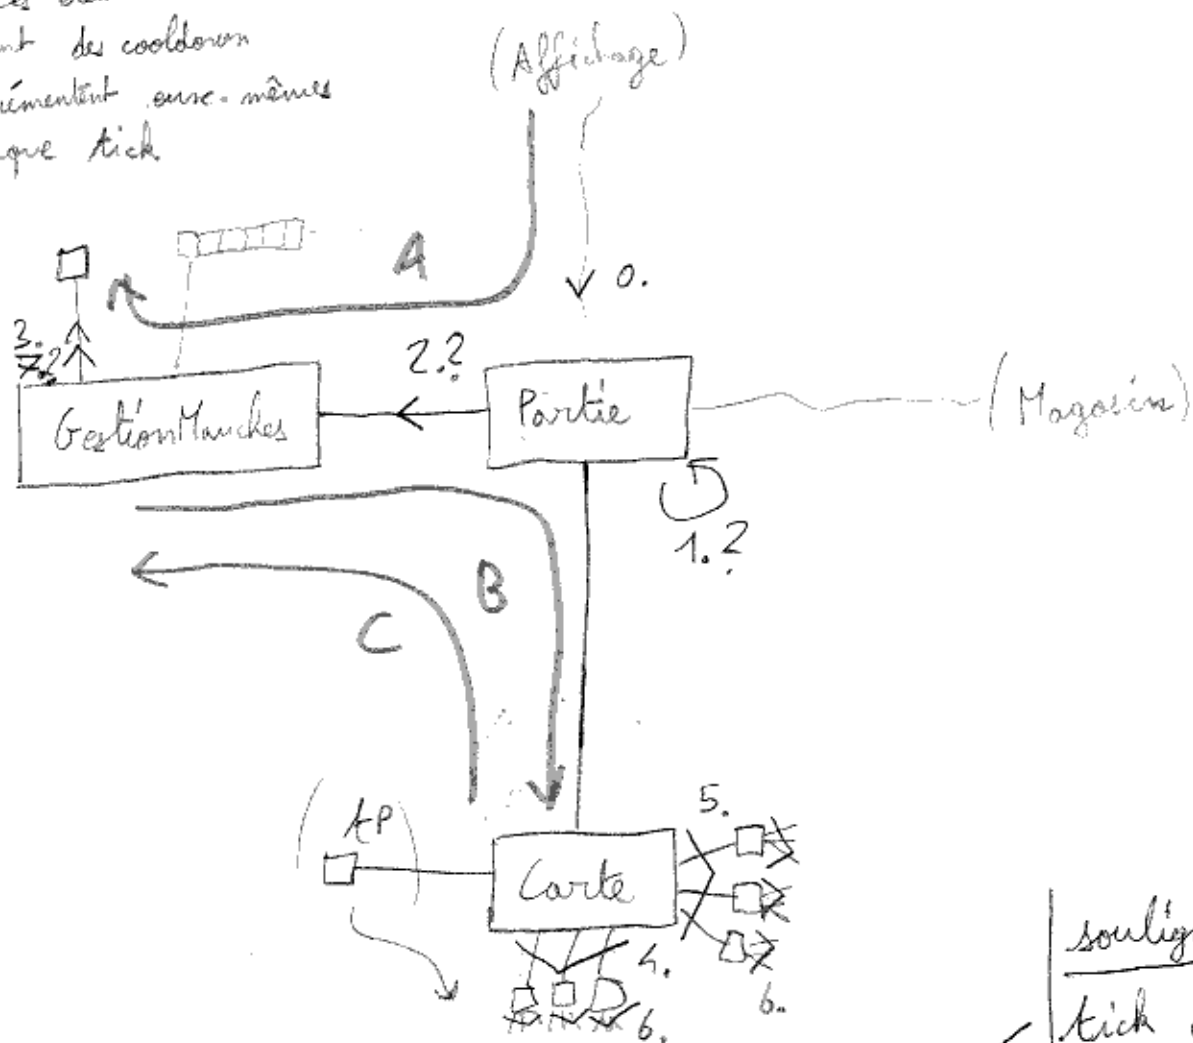 des cooldown
eux-mêmes
tick
(Affichage)
A
0.
3.
7.?
2.?
GestionManches
Partie
(Magasin)
1.?
B
C
(AP)
5.
Carte
4.
6.
6.
soulig
tick